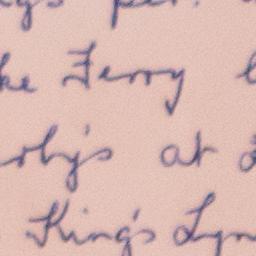 per.
ke Ferry
rly's at
King's Lyn